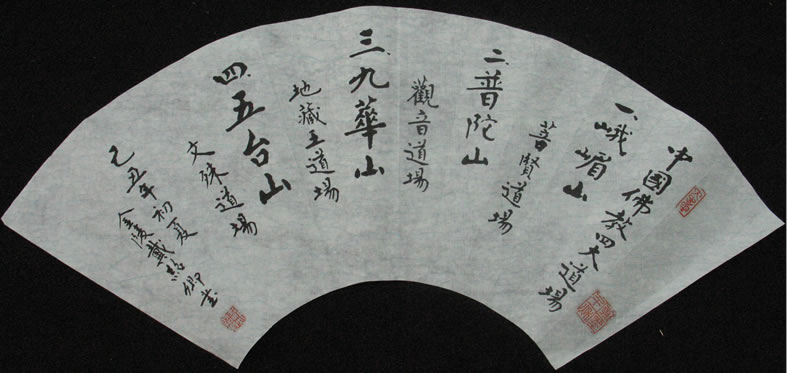 中國佛教四大道場
一、峨嵋山
普賢道場
二、普陀山
觀音道場
三、九華山
地藏王道場
四、五台山
文殊道場
己丑年初夏
金陵戴紹卿書